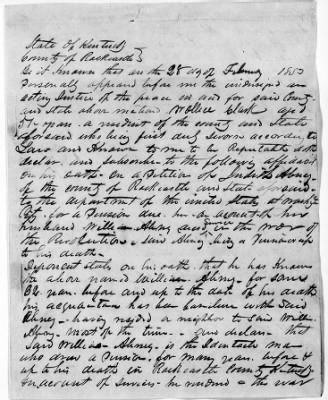 State Of Kentucky
County of Rockcastle
Be it Known that on the 28 day of Febuary 1853
Personaly appeared before me the undersigned an
acting Justice of the peace in and for said County
and State above mention Wallace Clark aged
years a resident of the county and State
aforesaid who being first duly Sworn according to
Law and Known to me to be Reputable doth
declare and Subscribe to the following affidavit
on his oath on a Petition of Judith Abney
of the county of Rockcastle and State aforesaid
to the department of the united States at
City for a Pension due her on account of her
husband Abney in the war of
the Revolution said Abney being a Pensioner up
to his death
Deponent states on his oath that he has Known
the above named William Abney for some
years before and up to the date of his death
his acquaintance has been familiar with said
Abney having resided a neighbor to said
Abney most of the time declare that
Said William Abney is the Identacle man
who drew a Pension for many years before &
up to his death in Rockcastle County Kentucky
on account of Services he rendered in the war